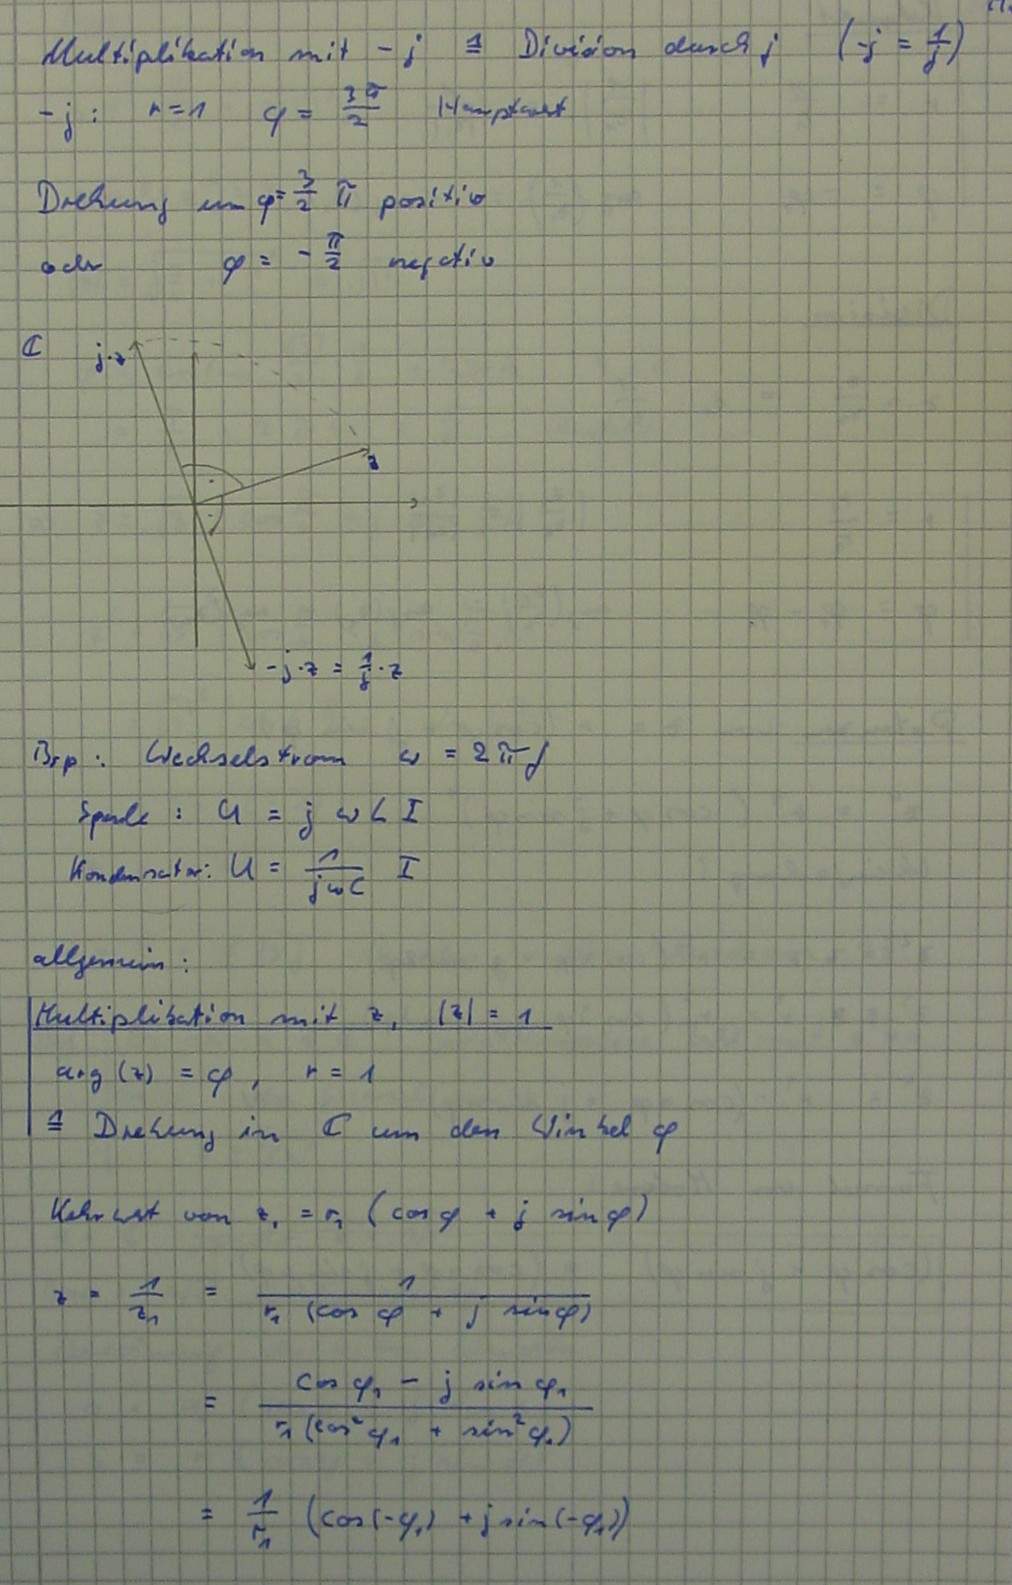 Multiplikation mit -j ≙ Division durch j (-j = 1/j)
-j : r=1 φ = 3π/2 Hauptwert
Drehung um φ= 3/2 π positiv
oder φ = - π/2 negativ
ℂ
j·z
z
-j·z = 1/j ·z
Bsp : Wechselstrom ω = 2πf
Spule : U = j ω L I
Kondensator: U = 1/(jωC) I
allgemein :
Multiplikation mit z, |z| = 1
arg (z) = φ, r = 1
≙ Drehung in ℂ um den Winkel φ
Kehrwert von z₁ = r₁ (cos φ + j sin φ)
z = 1/z₁ = 1/(r₁ (cos φ + j sin φ))
= (cos φ₁ - j sin φ₁)/(r₁ (cos² φ₁ + sin² φ₁))
= 1/r₁ (cos(-φ₁) + j sin(-φ₁))